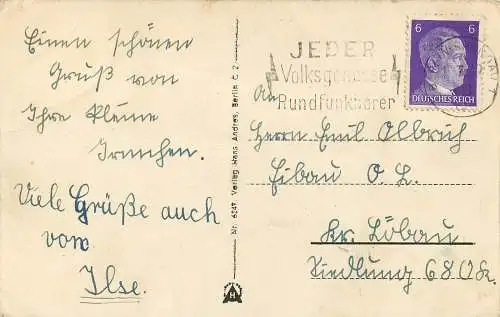 Einen schönen
Gruß von
Ihre kleine
Irmchen.
Viele Grüße auch
vom
Ilse.
Nr. 6247 Verlag Hans Andres, Berlin C. 2
H
JEDER
Volksgenosse
Rundfunkhörer
6 6
DEUTSCHES REICH
An
Herrn Emil Olbrich
Eibau O. L.
Kr. Löbau
Siedlung 680